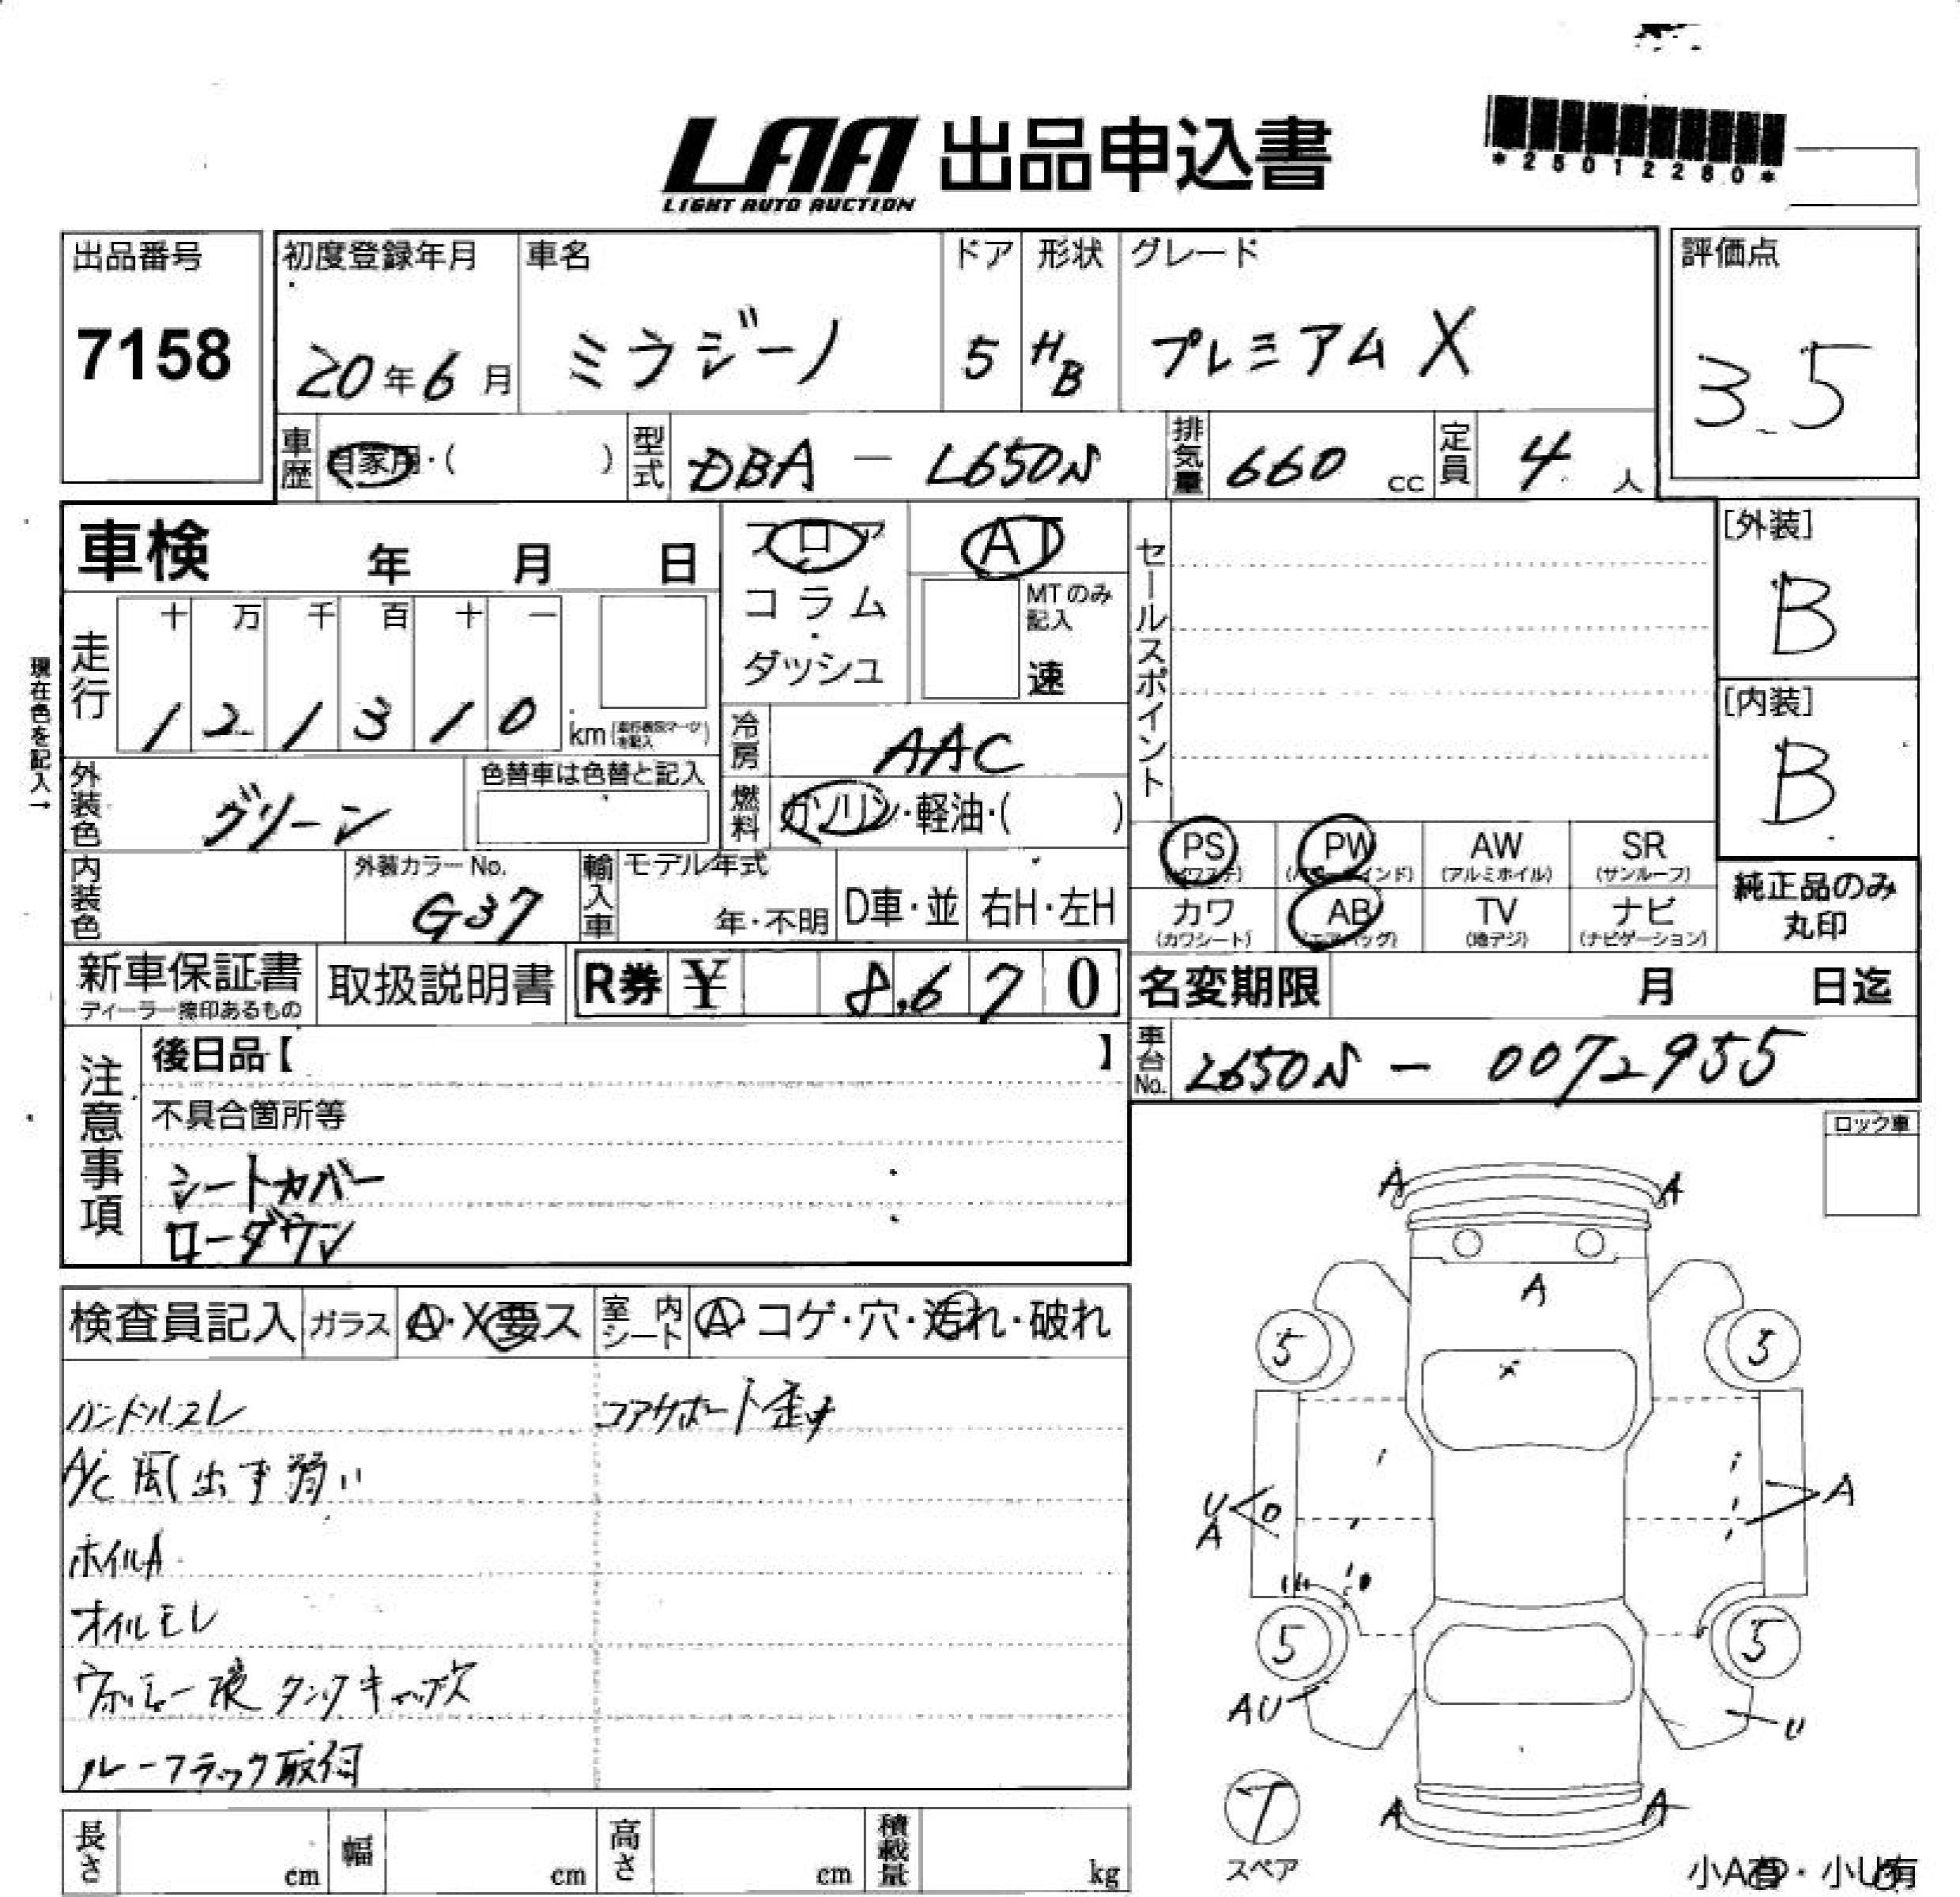 LAA 出品申込書
LIGHT AUTO AUCTION
*25012280*
出品番号
7158
初度登録年月
20年6月
車名
ミラジーノ
ドア
5
形状
HB
グレード
プレミアムX
評価点
3.5
車歴
自家用・( )
型式
DBA - L650S
排気量
660 cc
定員
4 人
車検 年 月 日
フロア
コラム
ダッシュ
AT
MTのみ
記入
速
セールスポイント
[外装]
B
[内装]
B
現在色を記入→
走行
十 万 千 百 十 一
1 2 1 3 1 0
km
冷房
AAC
外装色
グリーン
色替車は色替と記入
燃料
ガソリン・軽油・( )
内装色
外装カラーNo.
G37
輸入車
モデル年式
年・不明
D車・並
右H・左H
PS
(パワステ)
PW
AW
(アルミホイル)
SR
(サンルーフ)
カワ
(カワシート)
AB
(エアバッグ)
TV
(地デジ)
ナビ
(ナビゲーション)
純正品のみ
丸印
新車保証書
ディーラー捺印あるもの
取扱説明書
R券 ¥ 8,670
名変期限 月 日迄
車台No.
L650S - 0072955
注意事項
後日品【 】
不具合箇所等
シートカバー
ローダウン
ロック車
検査員記入
ガラス
A・X要ス
室内シート
A・コゲ・穴・汚れ・破れ
ハンドルスレ
コアサポート歪み
A/C 風出ず弱い
ホイルA
オイルモレ
ウォッシャー液タンクキャップ欠
ルーフラック取付
A
A
A
X
5
5
U
A
A
5
5
AU
U
T
スペア
A
A
小A有・小U有
長さ cm
幅 cm
高さ cm
積載量 kg